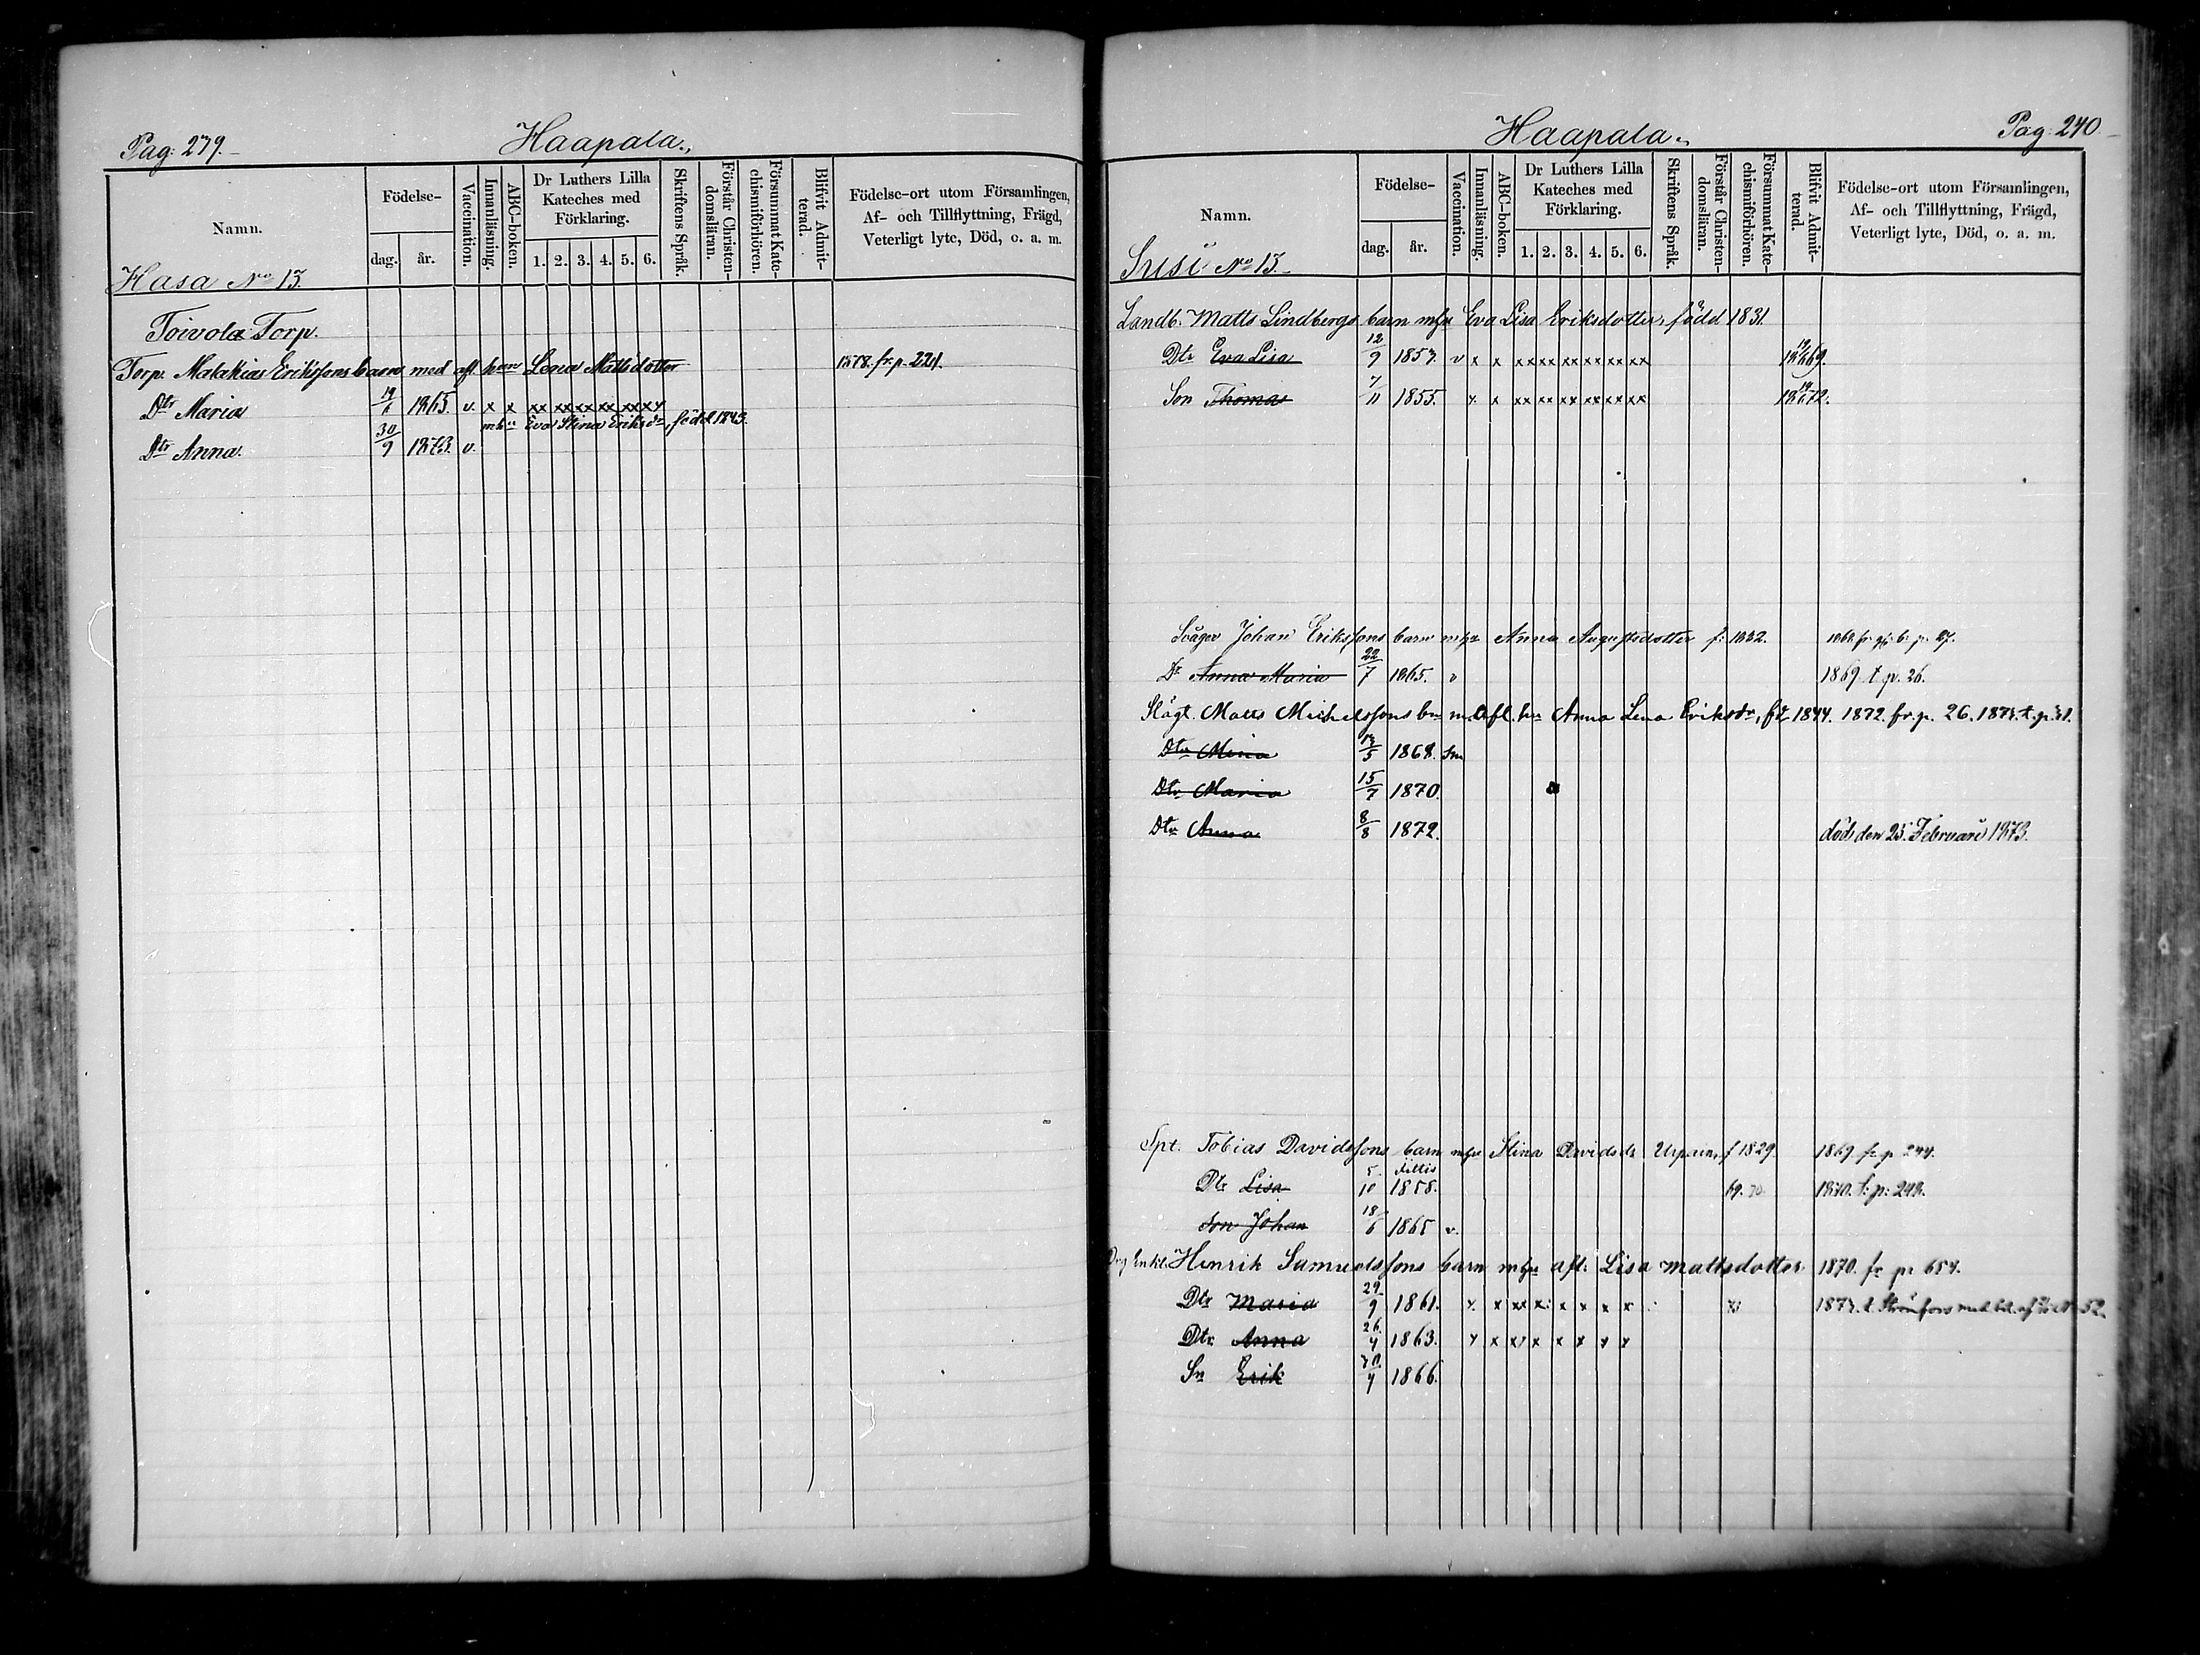 Pag: 279.
Haapala.
Namn.
Födelse-
dag.
år.
Vaccination.
Innanläsning.
ABC-boken.
Dr Luthers Lilla Kateches med Förklaring.
1. 2. 3. 4. 5. 6.
Skriftens Språk.
Förstår Christendomsläran.
Försummat Katechismiförhören.
Blifvit Admitterad.
Födelse-ort utom Församlingen,
Af- och Tillflyttning, Frägd,
Veterligt lyte, Död, o. a. m.
Hasa No 13.
Toivola Torp.
Torp. Malakias Erikssons barn med afl hon Lena Mattsdotter 1878. fr. p. 221.
Dtr Maria 1865. v. x x xx xx xx xx xx
mhu Eva Stina Eriksdr, född 1843.
Dtr Anna. 30/9 1873. v.
Haapala.
Pag: 240.
Namn.
Födelse-
dag.
år.
Vaccination.
Innanläsning.
ABC-boken.
Dr Luthers Lilla Kateches med Förklaring.
1. 2. 3. 4. 5. 6.
Skriftens Språk.
Förstår Christendomsläran.
Försummat Katechismiförhören.
Blifvit Admitterad.
Födelse-ort utom Församlingen,
Af- och Tillflyttning, Frägd,
Veterligt lyte, Död, o. a. m.
Susi No 13.
Landb. Matts Lindbergs barn mhu Eva Lisa Eriksdotter, född 1831.
Dtr Eva Lisa 12/9 1853. v x x xx xx xx xx xx xx 1869.
Son Thomas 7/11 1855. x x xx xx xx xx xx xx 1872.
Svåger Johan Erikssons barn mhu Anna Augustsdotter f: 1832.
Dr Anna Maria 22/7 1865. v 1869 t. p. 26.
Slägt. Matts Michelssons bn m. afl. hu Anna Lena Eriksdr, fdd 1844. 1872. fr. p. 26. 1873. t. p. 31.
Dtr Mina 1868.
Dtr Maria 15/7 1870.
Dtr Anna 8/8 1872. död den 25 Februari 1873.
Spt. Tobias Davidssons barn mhu Stina Davidsdr f 1829. 1869. fr. p 244.
Dtr Lisa 5/10 1858. 69. 70. 1870. t. p: 243.
Son Johan 18/6 1865 v.
Henrik Samuelssons barn mhu afl. Lisa Mattsdotter 1870. fr. p. 654.
Dtr Maria 29/9 1861. x x xx x x x x x
Dtr Anna 26/4 1863. x x xx x x x x x
Sn Erik 1866.